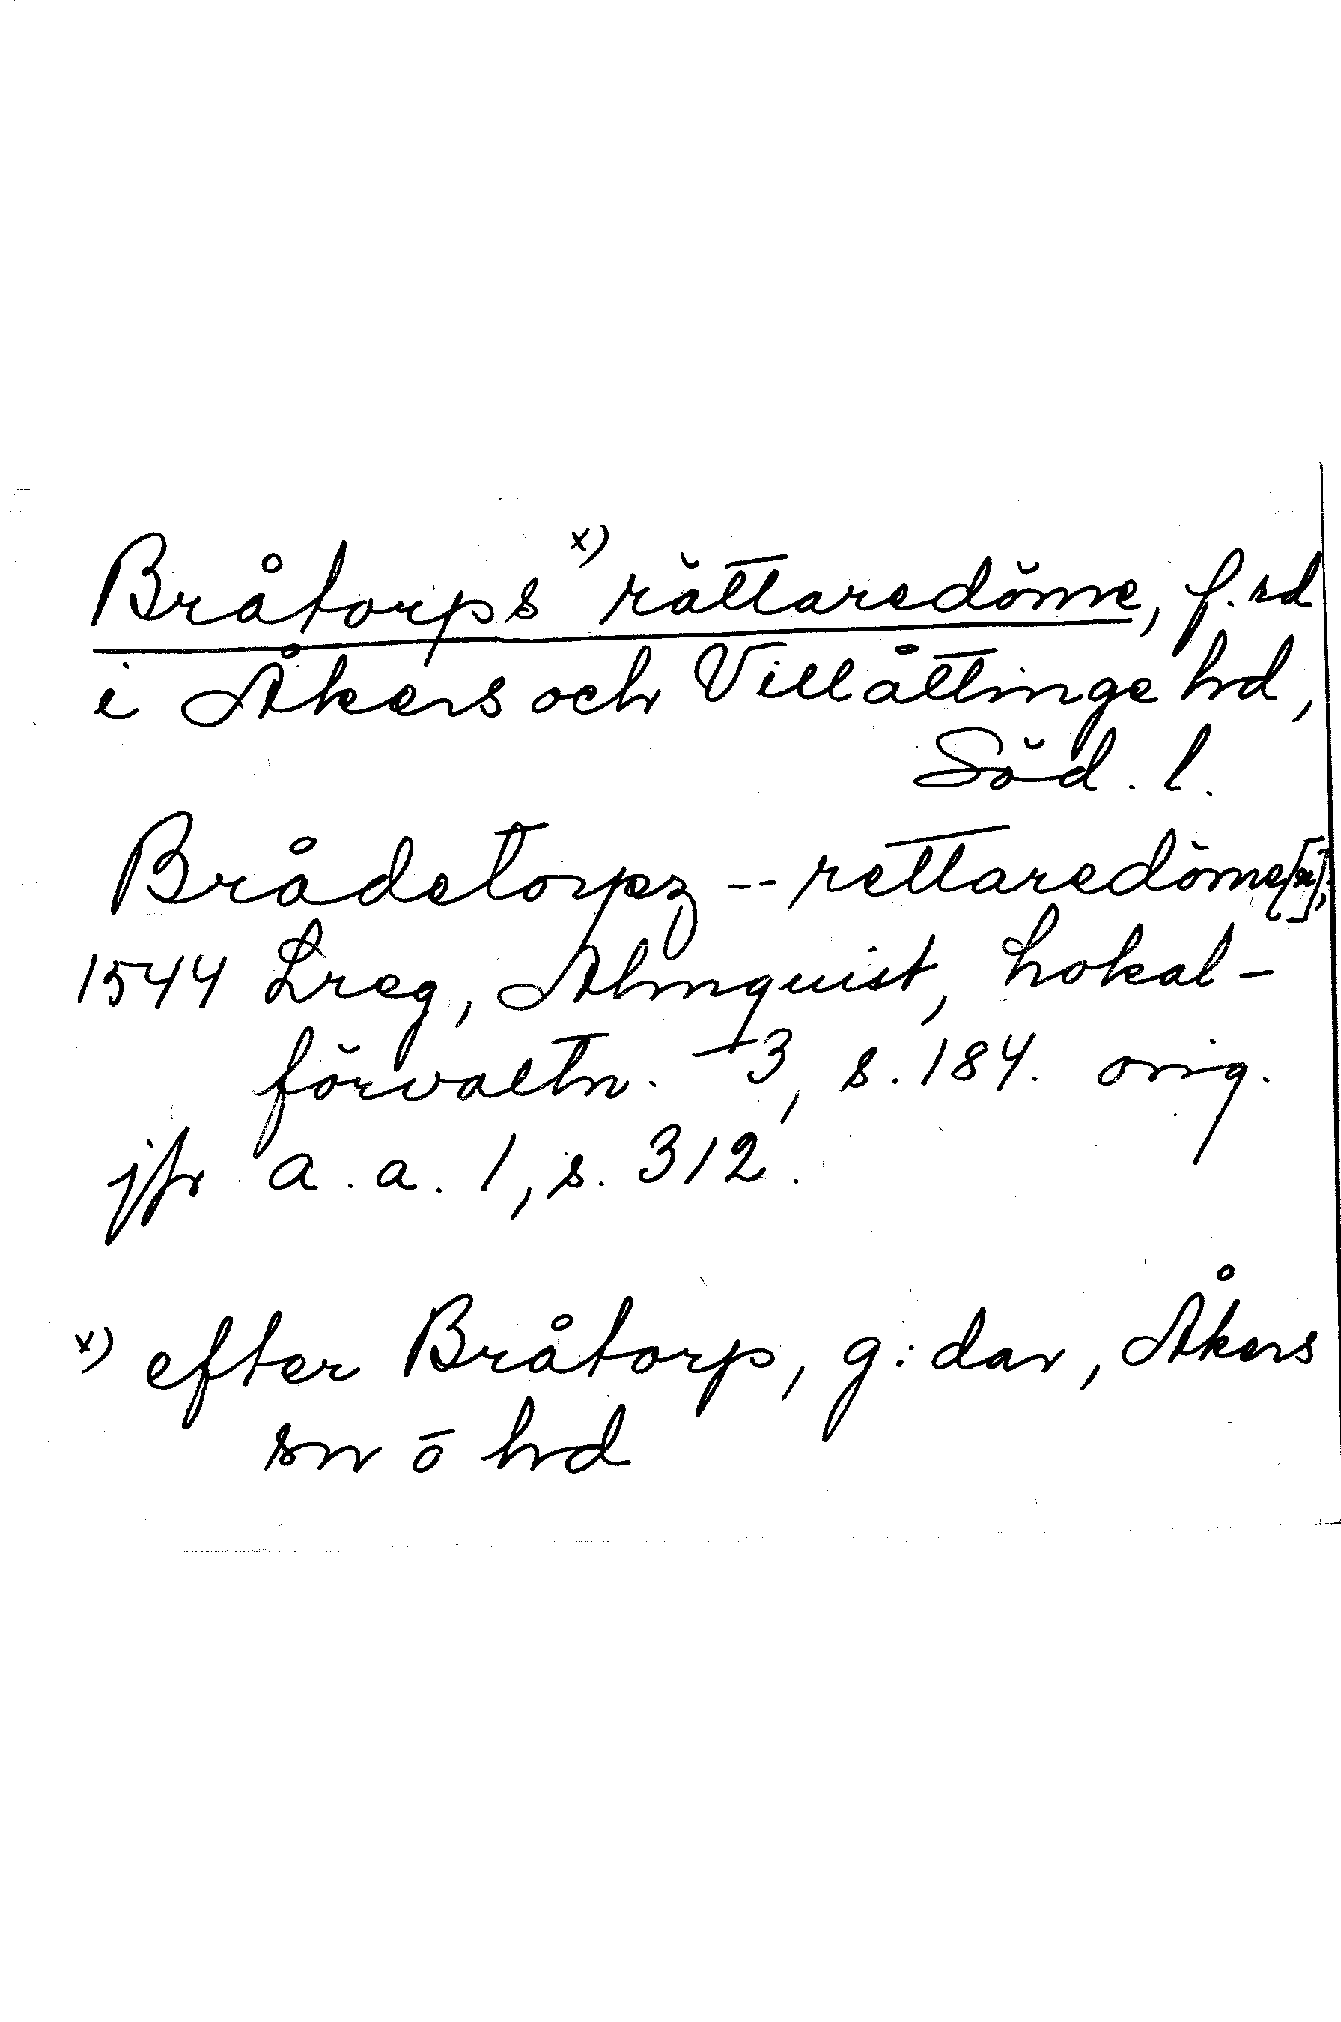 Bråtorps x) rättaredöme, f.rd
i Åkers och Villåttinge hd,
Söd. l.
Brådetorpz -- rettaredöme[n],
1544 Lreg, Almquist, Lokal-
förvaltn. 3, s. 184. orig.
jfr a. a. 1, s. 312.
x) efter Bråtorp, g:dar, Åkers
sn o hd